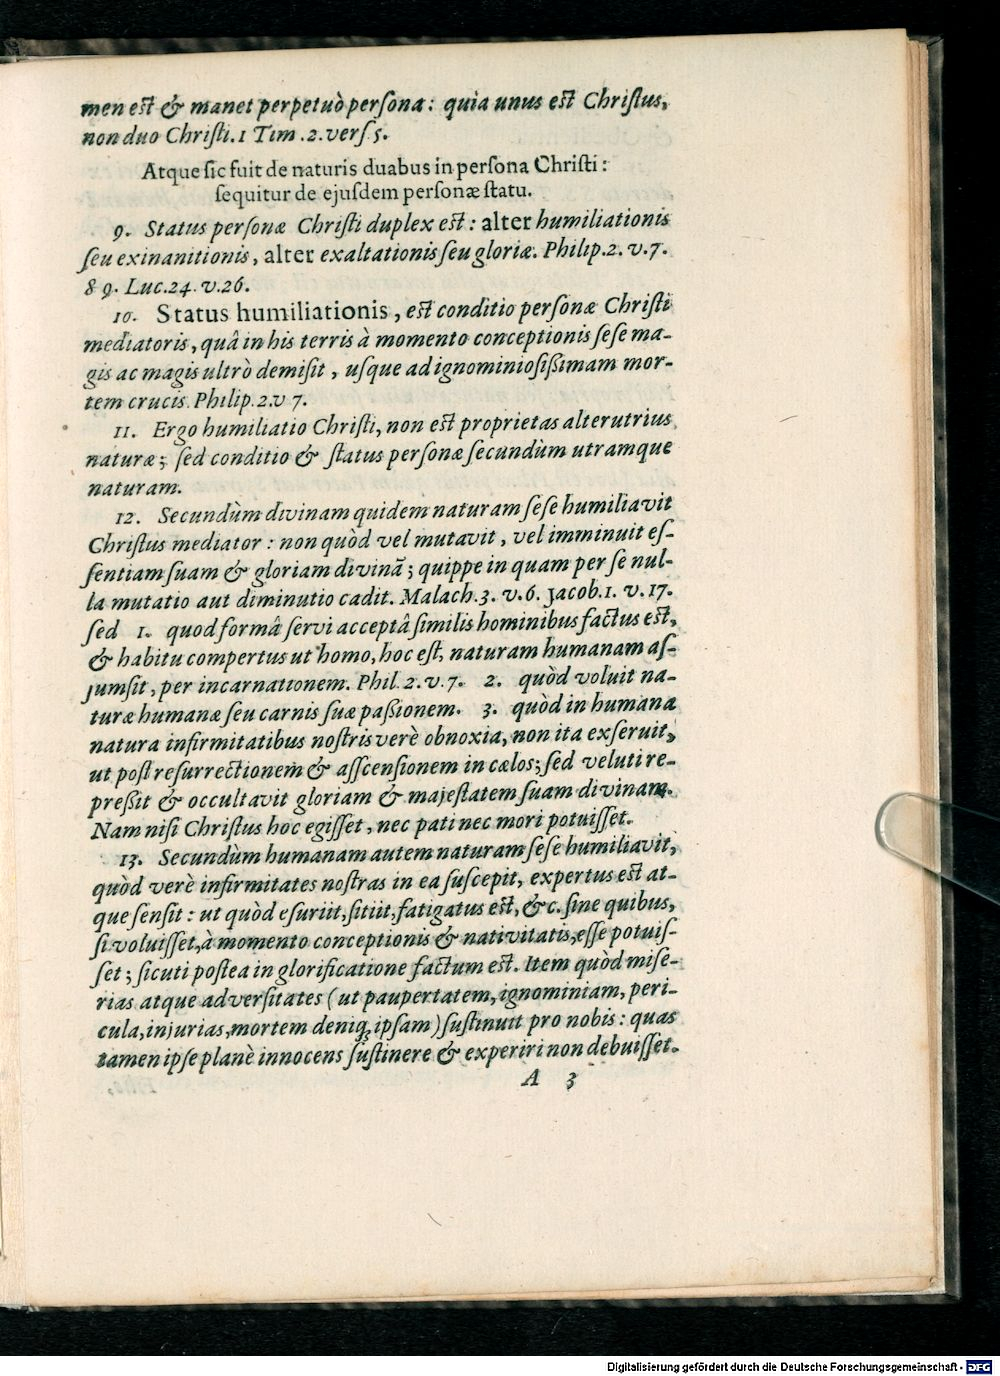 men est & manet perpetuò perſona: quia unus est Chriſtus,
non duo Chriſti. 1 Tim. 2. verſ 5.
Atque ſic fuit de naturis duabus in perſona Chriſti:
ſequitur de ejuſdem perſonæ ſtatu.
9. Status perſonæ Chriſti duplex est: alter humiliationis
ſeu exinanitionis, alter exaltationis ſeu gloriæ. Philip. 2. v. 7.
8 9. Luc. 24. v. 26.
10. Status humiliationis, est conditio perſonæ Chriſti
mediatoris, quâ in his terris à momento conceptionis ſeſe ma-
gis ac magis ultrò demiſit, uſque ad ignominioſiſſimam mor-
tem crucis Philip. 2. v 7.
11. Ergo humiliatio Chriſti, non est proprietas alterutrius
naturæ; ſed conditio & ſtatus perſonæ ſecundùm utramque
naturam.
12. Secundùm divinam quidem naturam ſeſe humiliavit
Chriſtus mediator: non quòd vel mutavit, vel imminuit eſ-
ſentiam ſuam & gloriam divinā; quippe in quam per ſe nul-
la mutatio aut diminutio cadit. Malach. 3. v. 6. Jacob. 1. v. 17.
ſed 1. quod formâ ſervi acceptâ ſimilis hominibus factus est,
& habitu compertus ut homo, hoc eſt, naturam humanam aſ-
jumſit, per incarnationem. Phil. 2. v. 7. 2. quòd voluit na-
turæ humanæ ſeu carnis ſuæ paſſionem. 3. quòd in humana
natura infirmitatibus noſtris verè obnoxia, non ita exſeruit,
ut poſt reſurrectionem & aſſcenſionem in cælos; ſed veluti re-
preſſit & occultavit gloriam & majeſtatem ſuam divinam.
Nam niſi Chriſtus hoc egiſſet, nec pati nec mori potuiſſet.
13. Secundùm humanam autem naturam ſeſe humiliavit,
quòd verè infirmitates noſtras in ea ſuſcepit, expertus est at-
que ſenſit: ut quòd eſuriit, ſitiit, fatigatus est, &c. ſine quibus,
ſi voluiſſet, à momento conceptionis & nativitatis, eſſe potuiſ-
ſet; ſicuti poſtea in glorificatione factum est. Item quòd miſe-
rias atque adverſitates (ut paupertatem, ignominiam, peri-
cula, injurias, mortem deniq; ipſam) ſuſtinuit pro nobis: quas
tamen ipſe planè innocens ſuſtinere & experiri non debuiſſet.
A 3
Digitalisierung gefördert durch die Deutsche Forschungsgemeinschaft - DFG